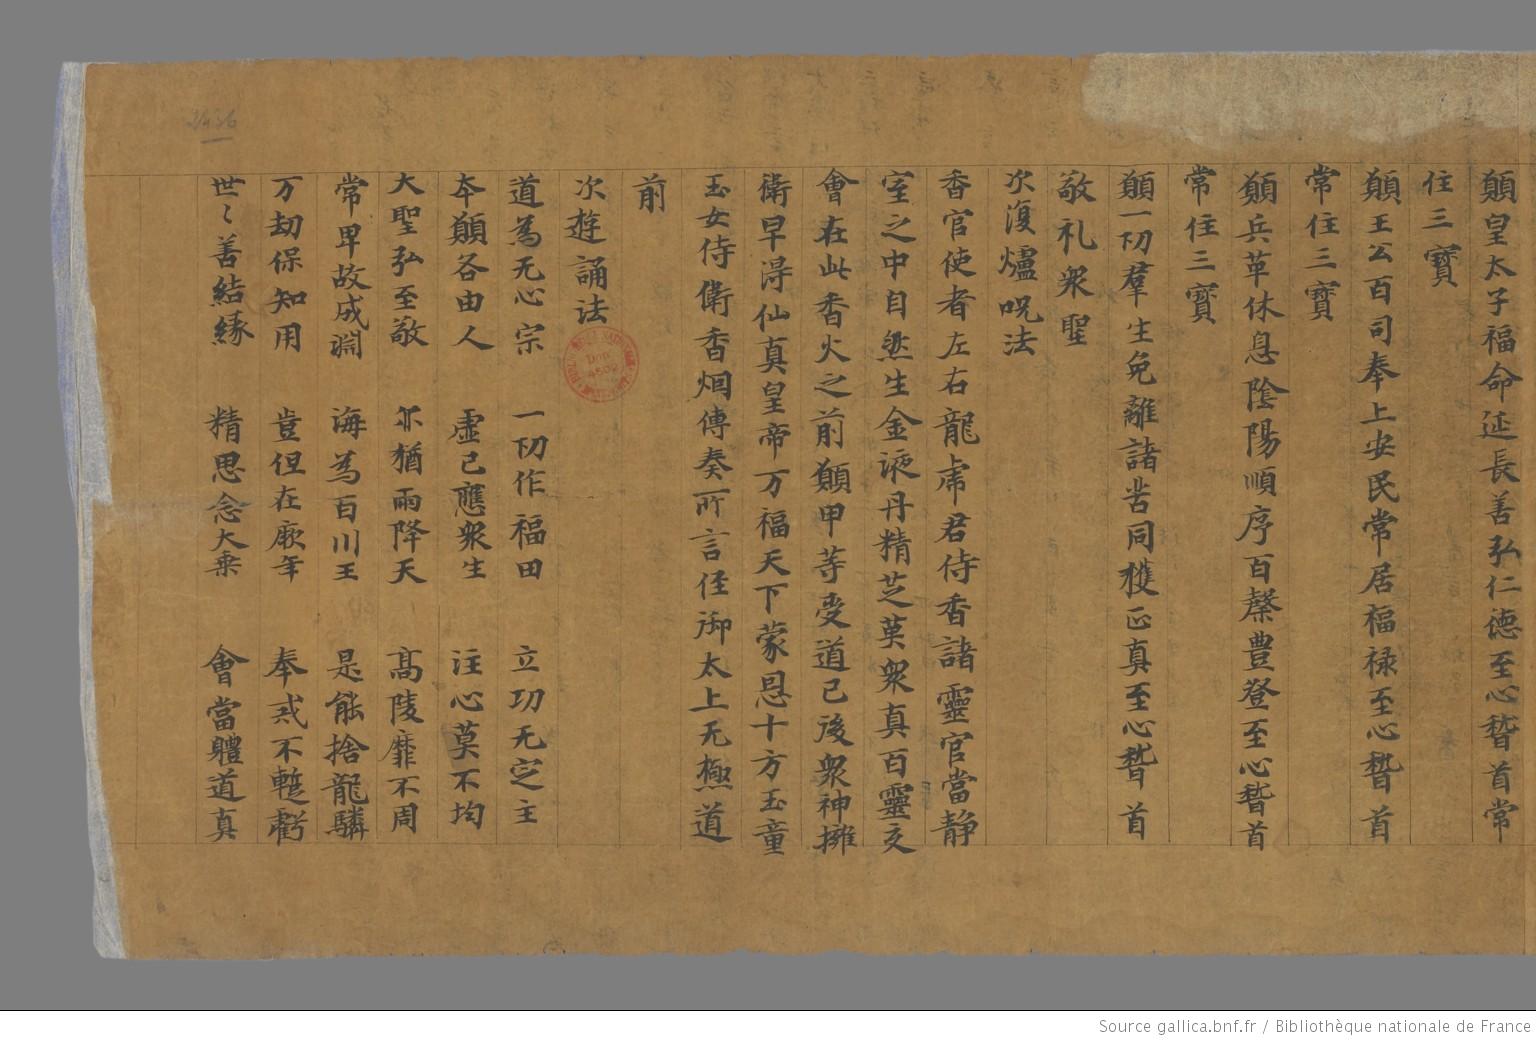 願皇太子福命延長善弘仁德至心𥡴首常
住三寳
願王公百司奉上安民常居福禄至心𥡴首
常住三寳
願兵革休息隂陽順序百糓豊登至心𥡴首
常住三寳
願一切羣生免離諸苦同穫正真至心𥡴首
敬礼衆聖
次復爐呪法
香官使者左右龍虎君侍香諸靈官當静
室之中自然生金液丹精芝英衆真百靈交
會在此香火之前願甲等受道已後衆神擁
衛早淂仙真皇帝万福天下蒙恩十方玉童
玉女侍衛香烟傳奏所言侄御太上无極道
前
次遊誦法
道為无心宗 一切作福田 立功无定主
本願各由人 虛己應衆生 注心莫不均
大聖弘至敬 尒猶雨降天 髙陵靡不周
常卑故成淵 海為百川王 是能捨龍驎
万劫保知用 豈但在厥年 奉戒不蹔虧
世〻善結緣 精思念大乗 會當體道真
Source gallica.bnf.fr / Bibliothèque nationale de France